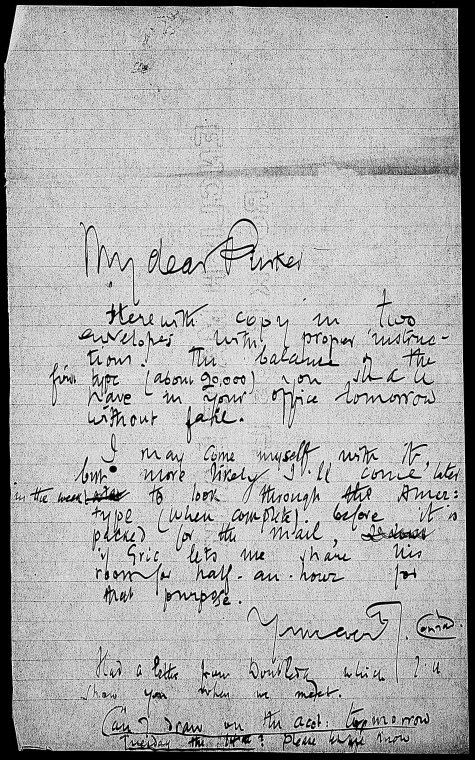 My dear Pinker
Herewith copy in two
envelopes with proper instruc-
tions. The balance of the
first type (about 20,000) you shall
have in your office tomorrow
without fail.
I may come myself with it,
but more likely I'll come later
in the week to look through the Amer:
type (when complete) before it is
packed for the mail,
if Eric lets me share his
room for half-an-hour for
that purpose.
Yours ever J. Conrad.
Had a letter from Doubleday which I'll
show you when we meet.
Can I draw on the acct: tomorrow
Tuesday the ? Please let me know